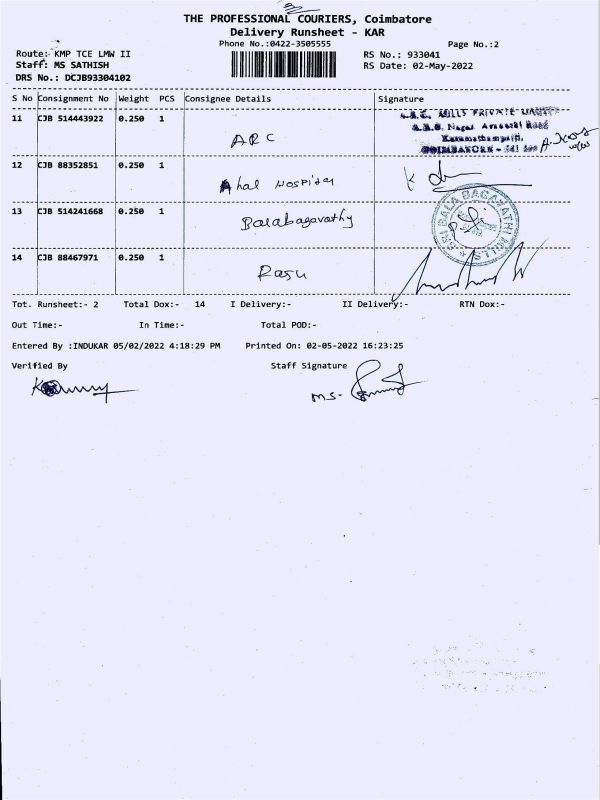 THE PROFESSIONAL COURIERS, Coimbatore
Delivery Runsheet - KAR
Phone No.:0422-3505555
Page No.:2
Route: KMP TCE LMW II
RS No.: 933041
Staff: MS SATHISH
RS Date: 02-May-2022
DRS No.: DCJB93304102
S No Consignment No Weight PCS Consignee Details Signature
11 CJB 514443922 0.250 1 ARC
MILLS PRIVATE
Nagar
COIMBATORE -
12 CJB 88352851 0.250 1 Ahal Hospital
13 CJB 514241668 0.250 1 Balabagavathy
SRI BALA BAGAVATHI MILLS
14 CJB 88467971 0.250 1 Rasu
Tot. Runsheet:- 2 Total Dox:- 14 I Delivery:- II Delivery:- RTN Dox:-
Out Time:- In Time:- Total POD:-
Entered By :INDUKAR 05/02/2022 4:18:29 PM Printed On: 02-05-2022 16:23:25
Verified By Staff Signature
MS-